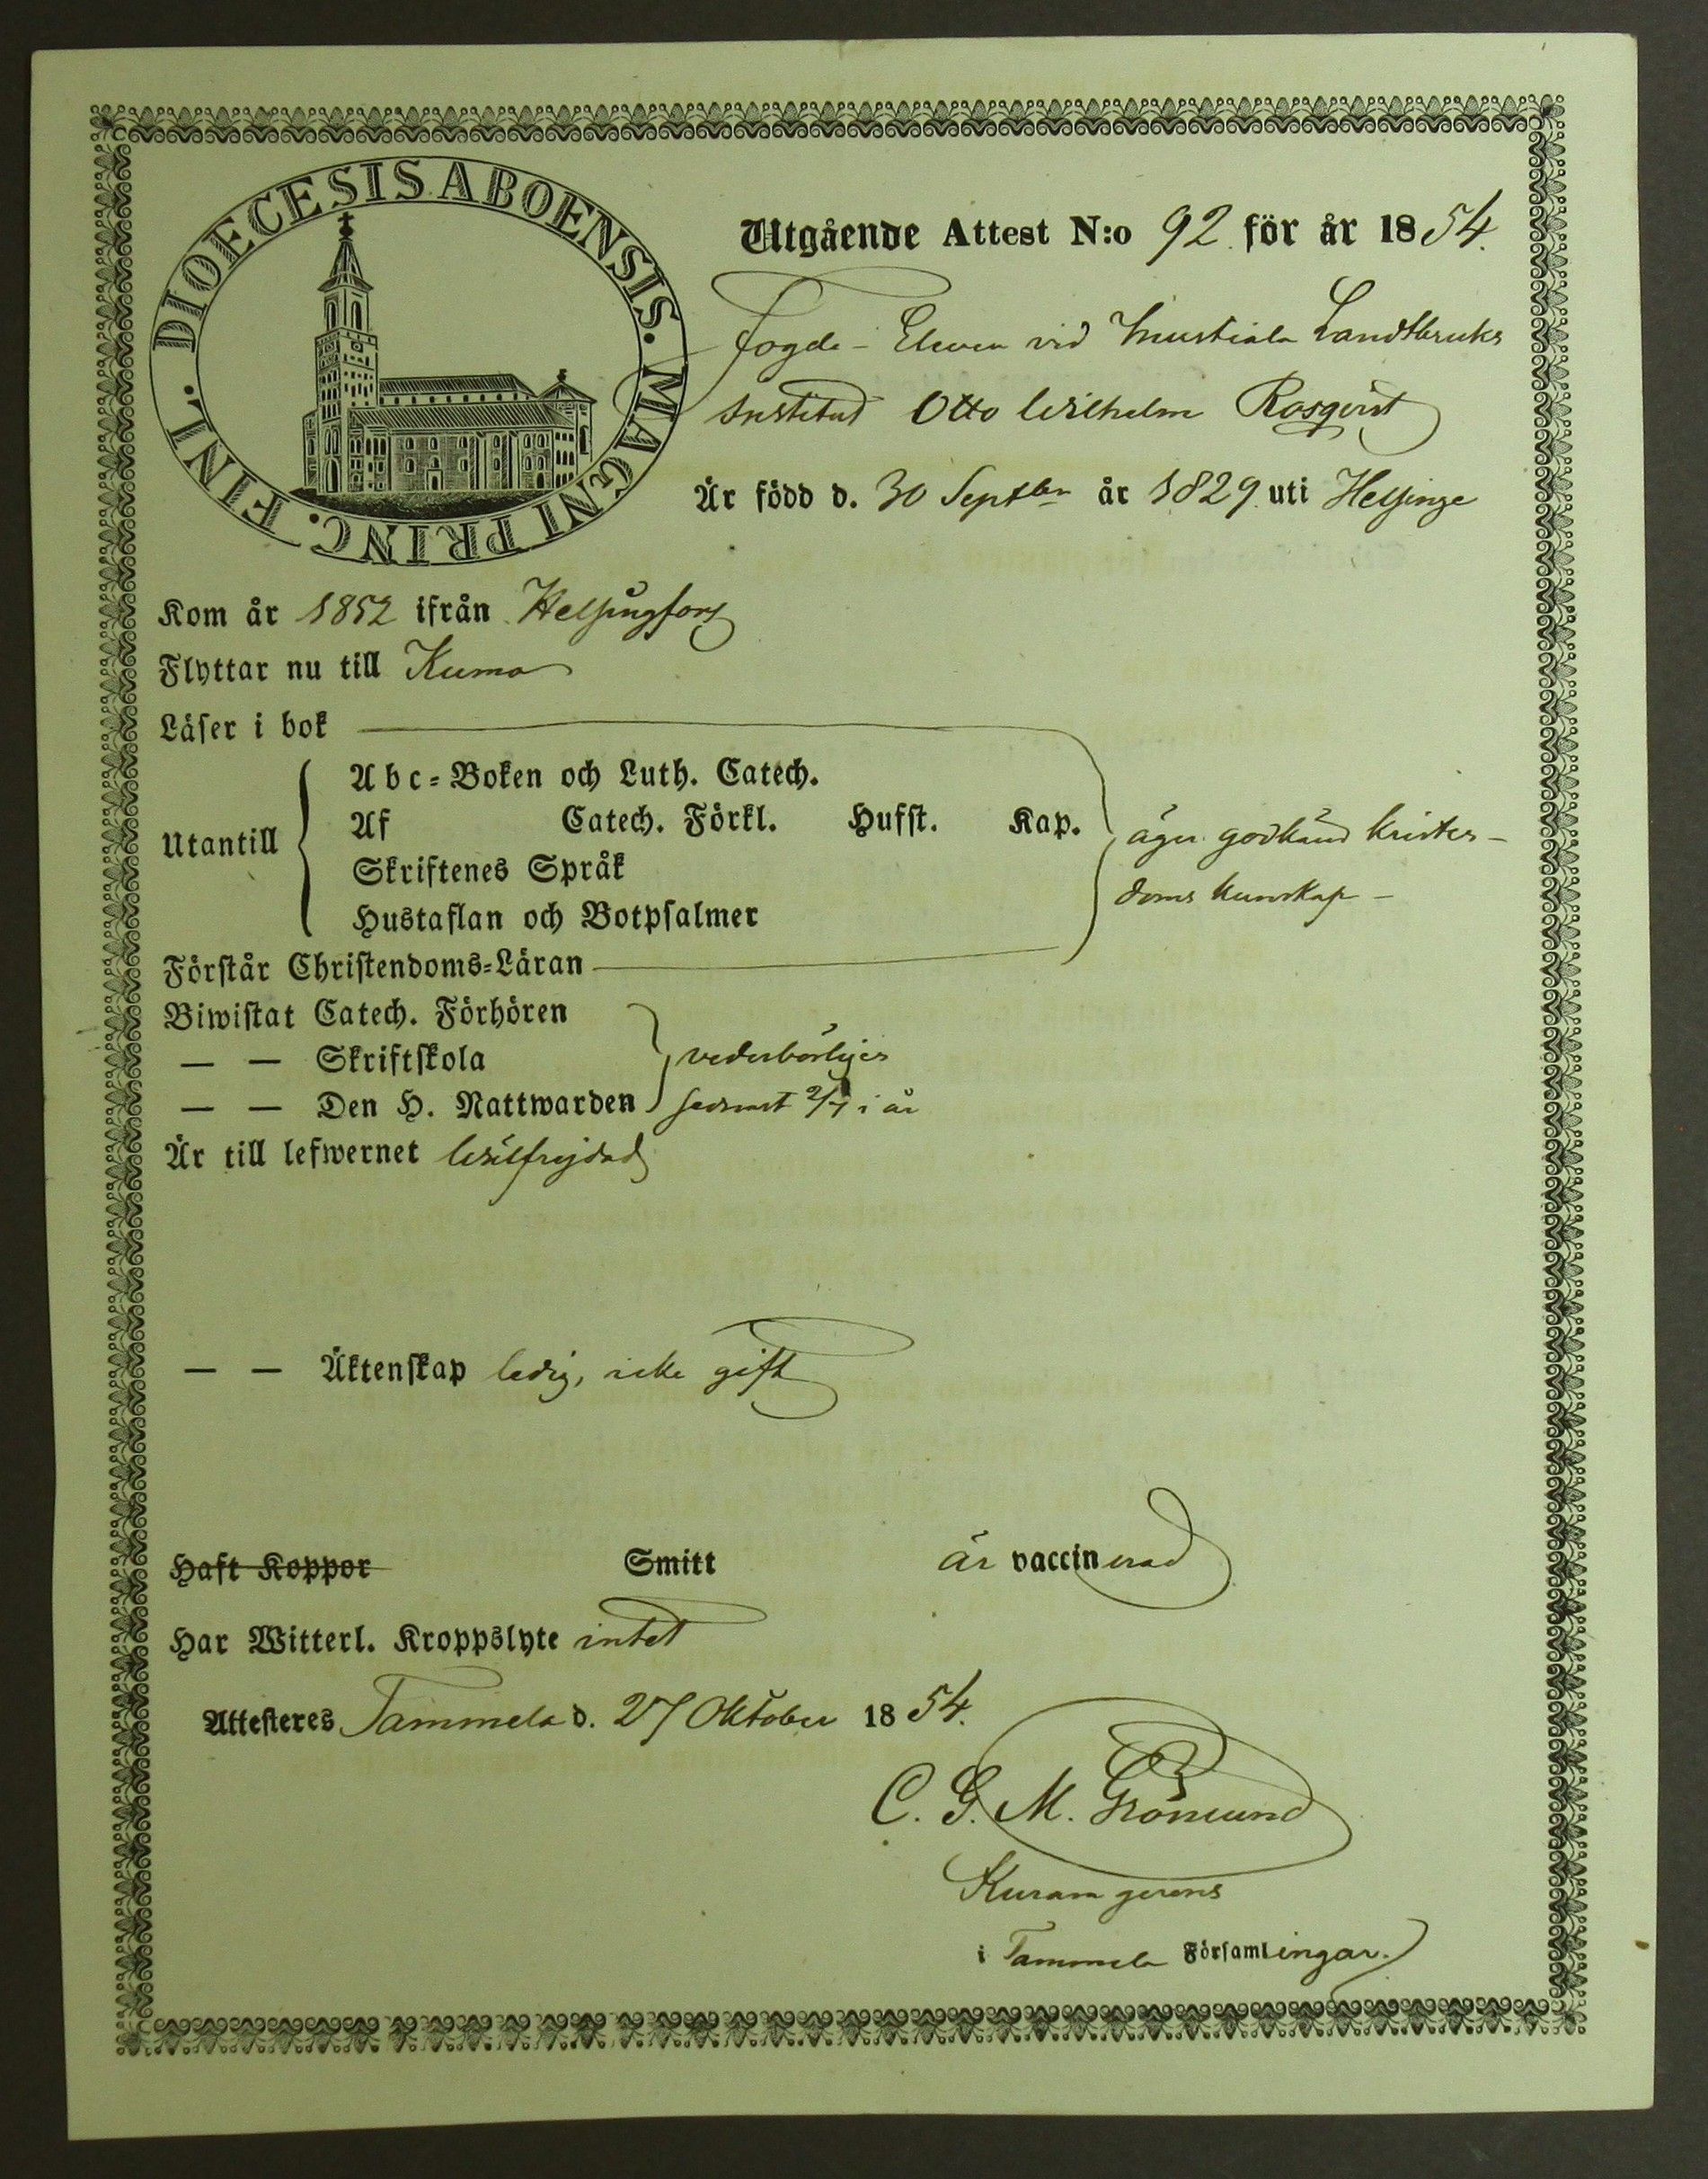 DIOECESIS ABOENSIS. MAGNI PRINC. FINL.
Utgående Attest N:o 92 för år 1854.
Fogde-Eleven vid Mustiala Landtbruks
Institut Otto Wilhelm Rosqvist
Är född d. 30 Septbr år 1829 uti Helsinge
Kom år 1852 ifrån Helsingfors
Flyttar nu till Kumo
Läser i bok
Utantill
Abc-Boken och Luth. Catech.
Af Catech. Förkl. Hufst. Kap.
Skriftenes Språk
Hustaflan och Botpsalmer
äger godkänd kristen-
doms kunskap -
Förstår Christendoms-Läran
Biwistat Catech. Förhören
— — Skriftskola vederbörligen
— — Den H. Nattwarden sednast 2/7 i år
Är till lefwernet wälfrejdad
— — Äktenskap ledig, icke gift
Haft Koppor Smitt är vaccinerad
Har Witterl. Kroppslyte intet
Attesteres Tammela d. 27 Oktober 1854.
C. G. M. Grönlund
Kuram gerens
i Tammela Församlingar.